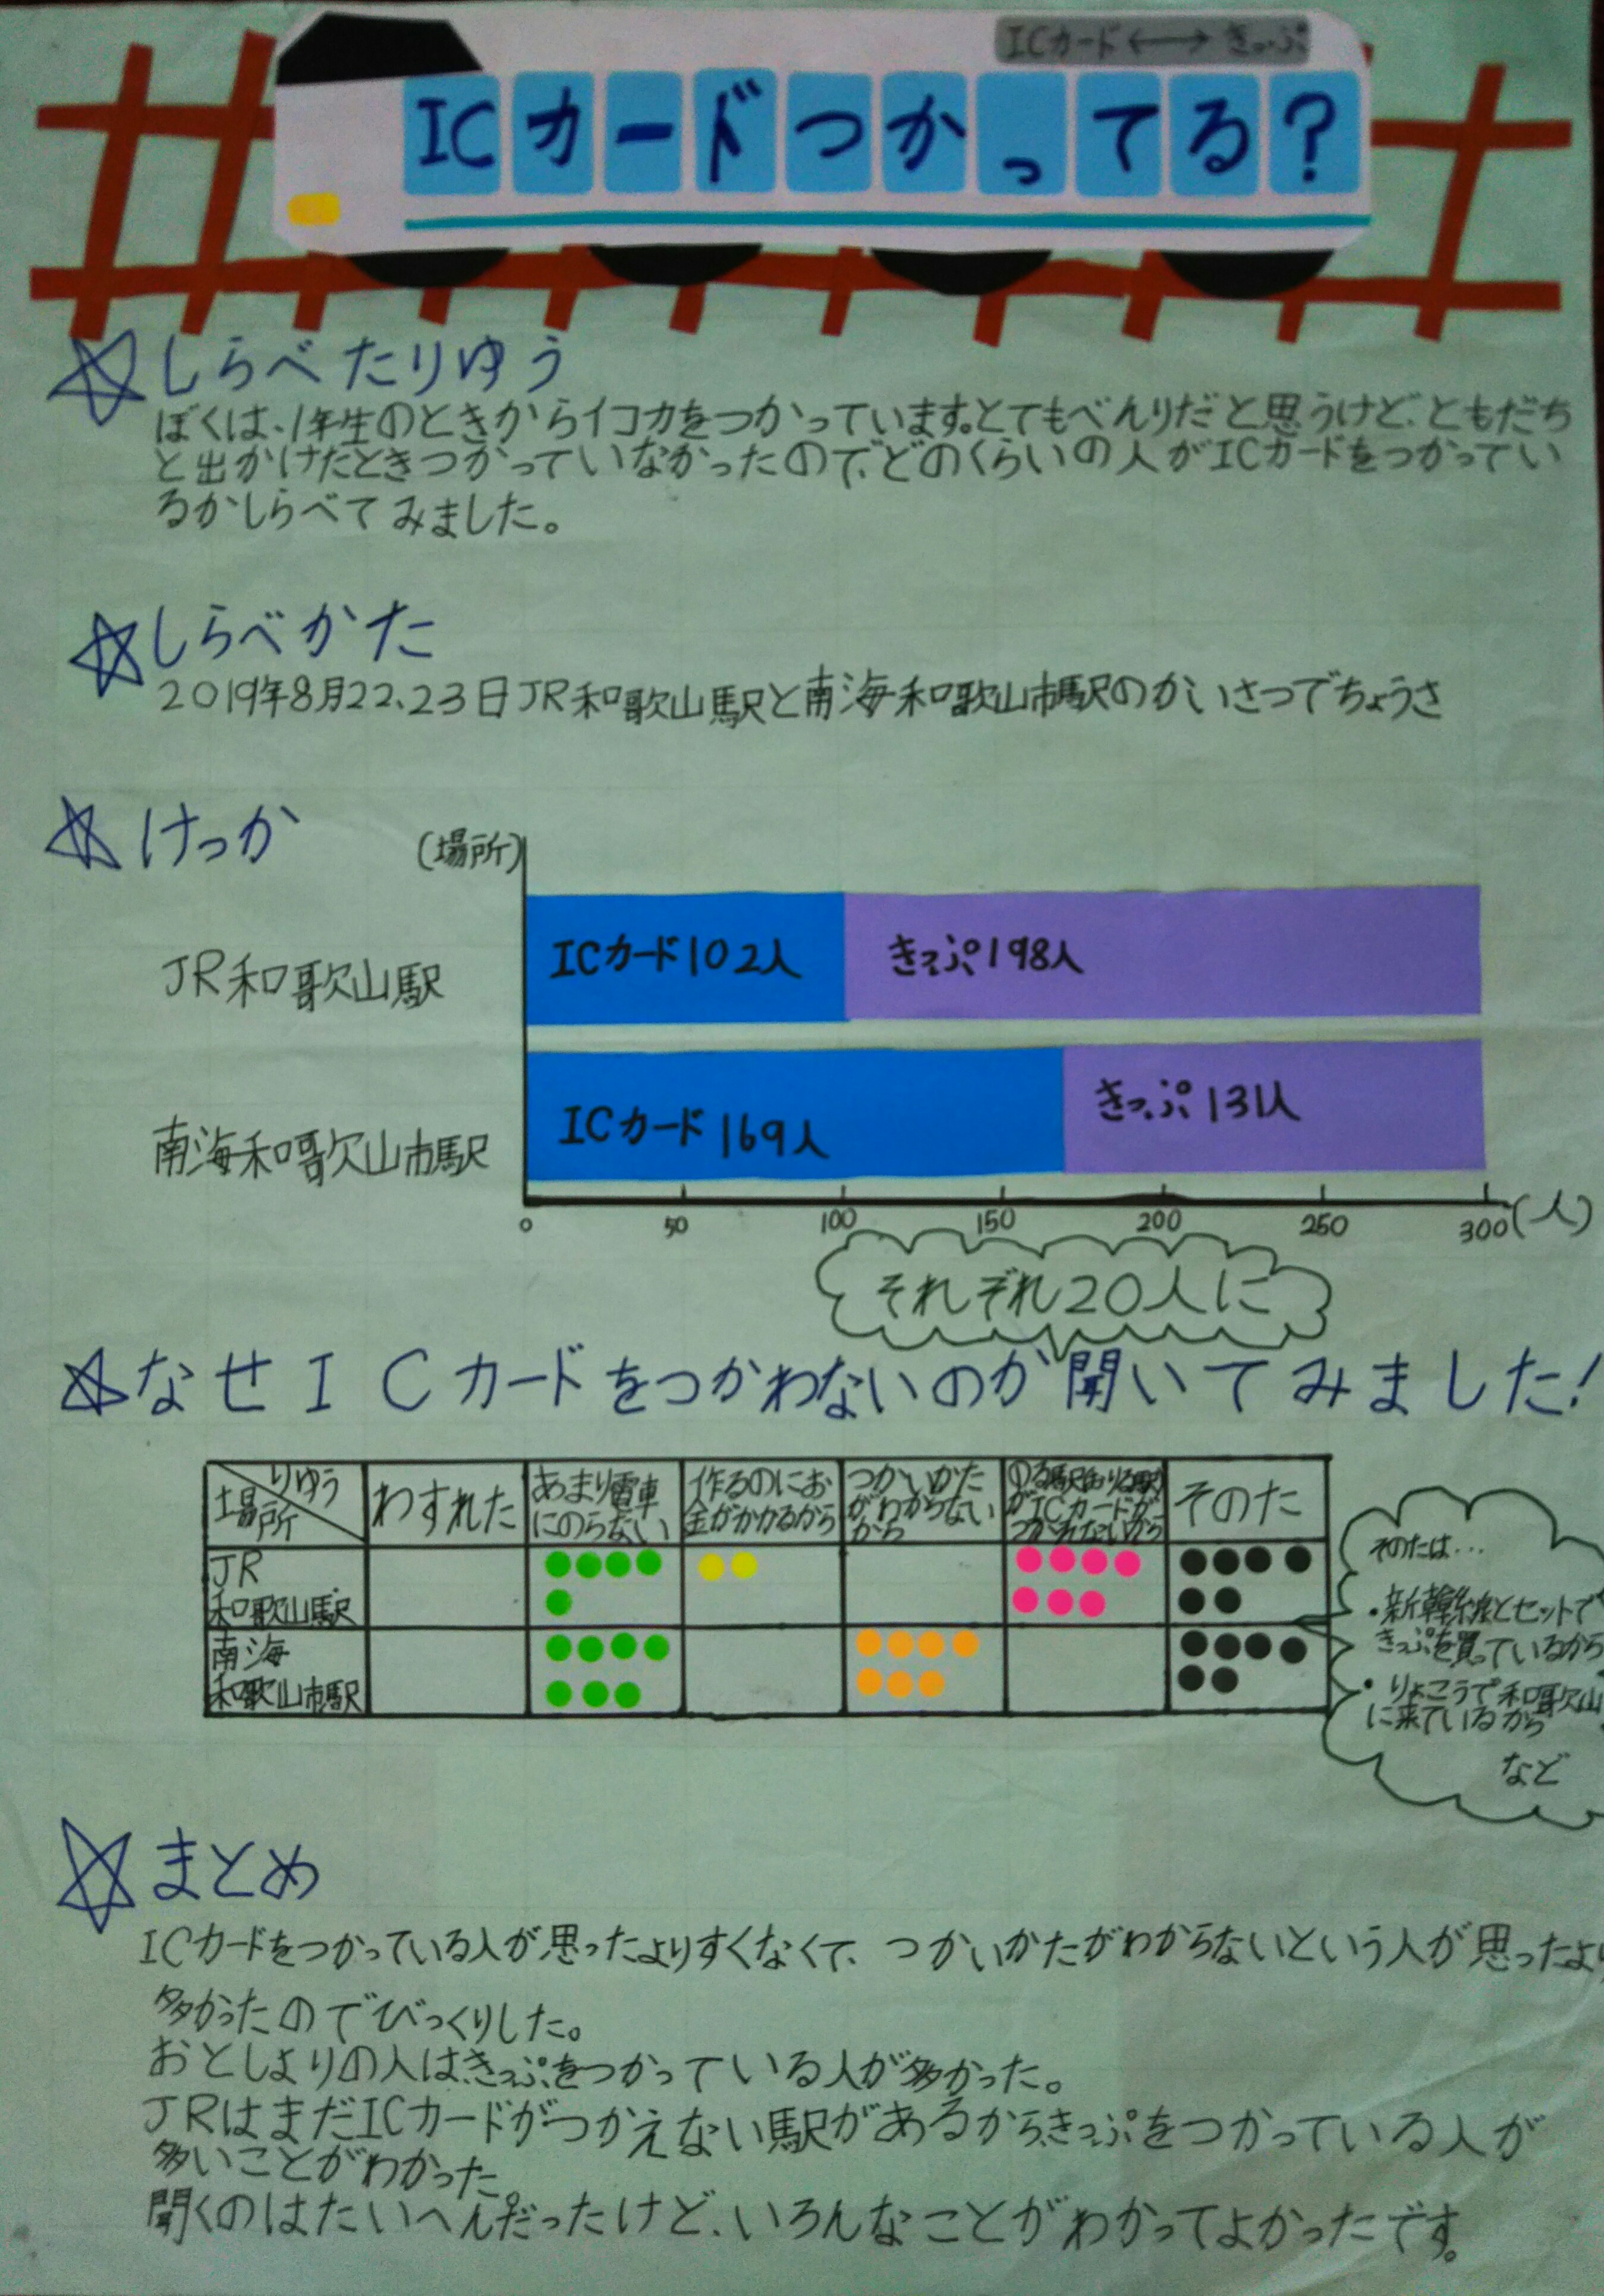 ICカード⟷きっぷ
ICカードつかってる?
しらべたりゆう
ぼくは、1年生のときからイコカをつかっています。とてもべんりだと思うけど、ともだち
と出かけたときつかっていなかったので、どのくらいの人がICカードをつかってい
るかしらべてみました。
しらべかた
2019年8月22、23日JR和歌山駅と南海和歌山市駅のかいさつでちょうさ
けっか
(場所)
JR和歌山駅
ICカード102人
きっぷ198人
南海和歌山市駅
ICカード169人
きっぷ131人
0 50 100 150 200 250 300(人)
それぞれ20人に
なぜICカードをつかわないのか聞いてみました!
りゆう
場所
わすれた
あまり電車
にのらない
作るのにお
金がかかるから
つかいかた
がわからない
から
のる駅(おりる駅)
がICカードが
つかれないから
そのた
JR
和歌山駅
南海
和歌山市駅
そのたは…
・新幹線とセットで
きっぷを買っているから
・りょこうで和歌山
に来ているから
など
まとめ
ICカードをつかっている人が思ったよりすくなくて、つかいかたがわからないという人が思ったより
多かったのでびっくりした。
おとしよりの人は、きっぷをつかっている人が多かった。
JRはまだICカードがつかえない駅があるから、きっぷをつかっている人が
多いことがわかった。
聞くのはたいへんだったけど、いろんなことがわかってよかったです。